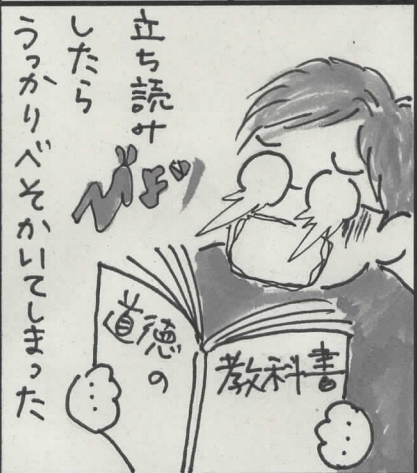 立ち読み
したら
うっかりべそかいてしまった
道徳の
教科書